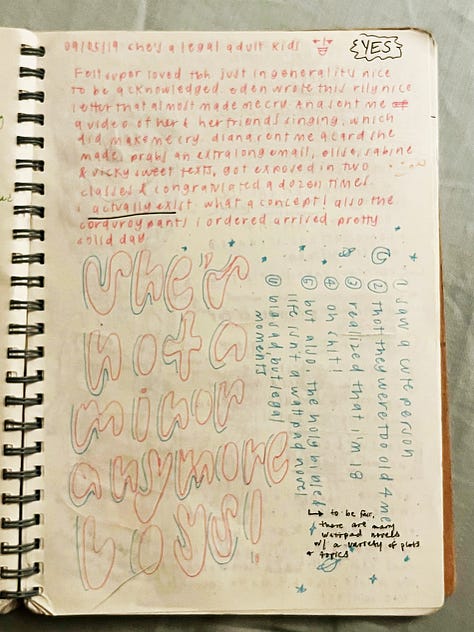 09/05/19 she's a legal adult kids
YES
Felt super loved tbh just in generality nice
to be acknowledged. eden wrote this rlly nice
letter that almost made me cry. Ana sent me
a video of her & her friends singing, which
did make me cry. diana sent me a card she
made, prabs an extra long email, olive, sabine
& vicky sweet texts, got exposed in two
classes & congratulated a dozen times
i actually exist what a concept! also the
corduroy pants i ordered arrived pretty
solid day
She's
not a
minor
anymore
boys!
① I saw a cute person
② that they were too old 4 me
③ realized that i'm 18
④ oh shit!
⑤ but also the holy bible &
life isn't a wattpad novel
⑥ blessed but legal
moments
↳ to be fair,
there are many
wattpad novels
w/ a variety of plots
+ topics